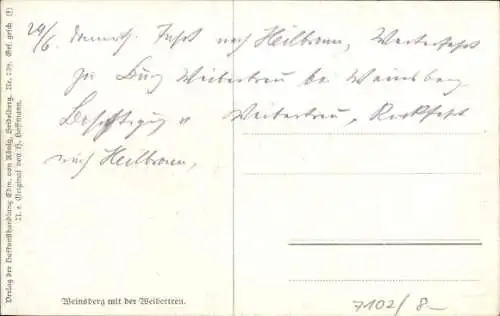 24/6. Fahrt nach Heilbronn, Weiterfahrt
zu Burg Weibertreu bei Weinsberg
Besichtigung Weibertreu, Rückfahrt
nach Heilbronn,
Weinsberg mit der Weibertreu.
7102/8-
Verlag der Hofkunsthandlung Edm. von König, Heidelberg. Nr. 239. Ges. gesch.
N. e. Original von H. Hoffmann.